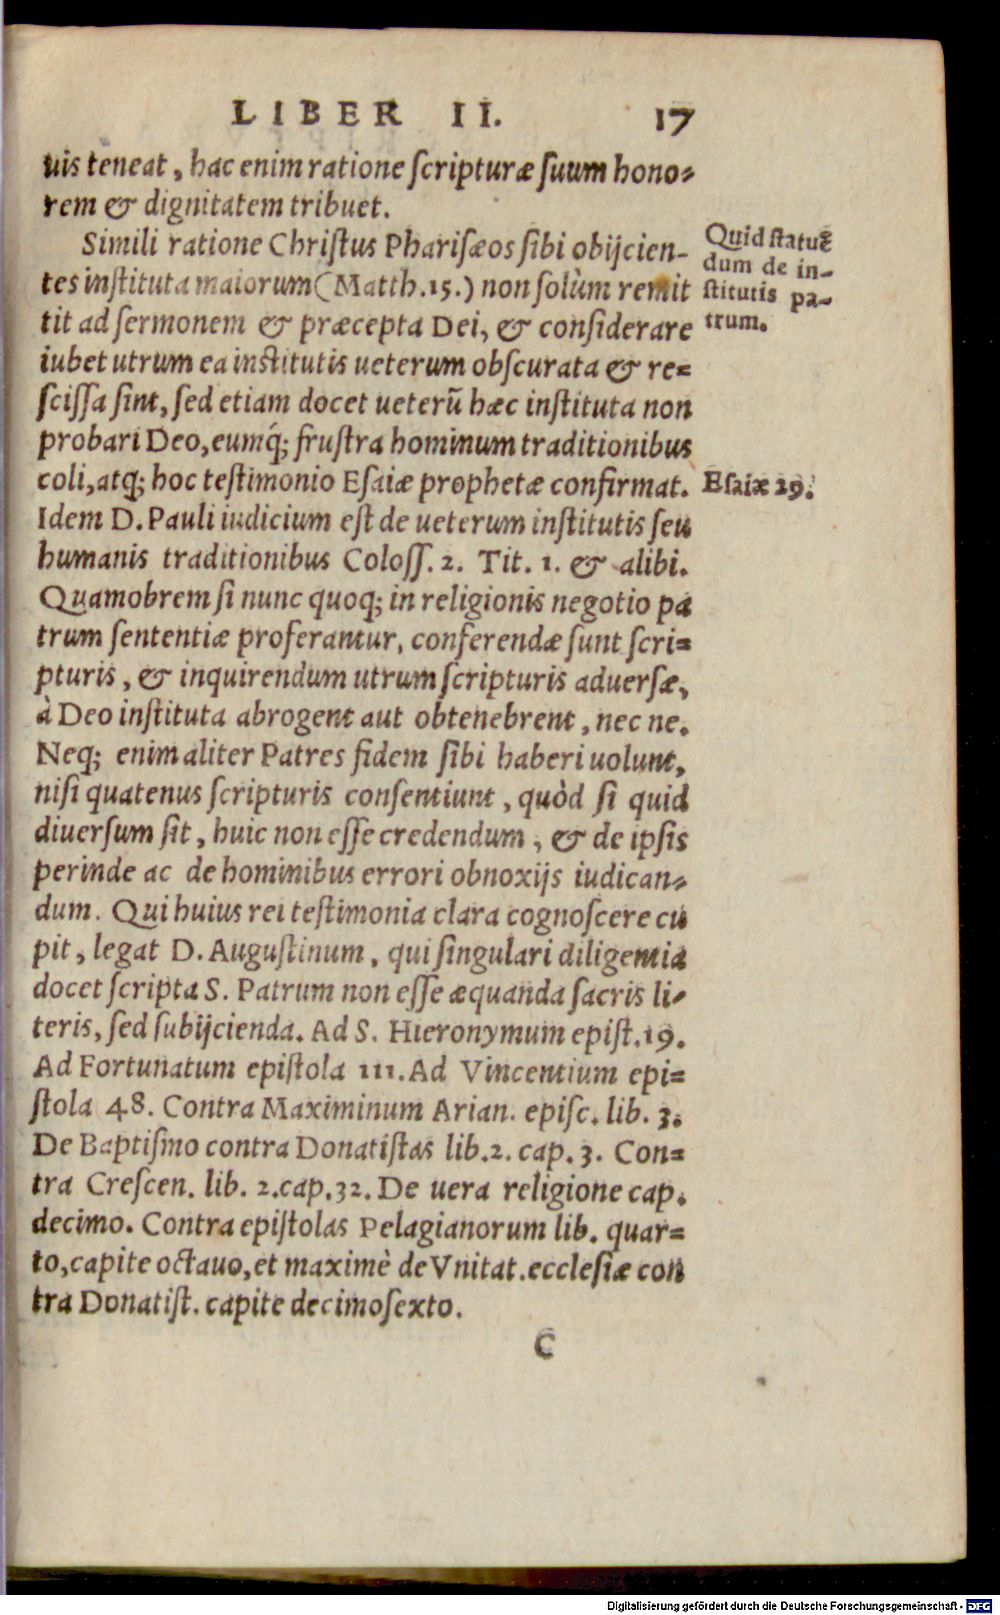 LIBER II. 17
uis teneat, hac enim ratione scripturæ suum hono-
rem & dignitatem tribuet.
Simili ratione Christus Pharisæos sibi obijcien-
tes instituta maiorum (Matth.15.) non solùm remit
tit ad sermonem & præcepta Dei, & considerare
iubet utrum ea institutis ueterum obscurata & re=
scissa sint, sed etiam docet ueterū hæc instituta non
probari Deo, eumq́; frustra hominum traditionibus
coli, atq; hoc testimonio Esaiæ prophetæ confirmat.
Idem D. Pauli iudicium est de ueterum institutis seu
humanis traditionibus Coloss. 2. Tit. 1. & alibi.
Quamobrem si nunc quoq; in religionis negotio pa
trum sententiæ proferantur, conferendæ sunt scri=
pturis, & inquirendum utrum scripturis aduersæ,
à Deo instituta abrogent aut obtenebrent, nec ne.
Neq; enim aliter Patres fidem sibi haberi uolunt,
nisi quatenus scripturis consentiunt, quòd si quid
diuersum sit, huic non esse credendum, & de ipsis
perinde ac de hominibus errori obnoxijs iudican-
dum. Qui huius rei testimonia clara cognoscere cu
pit, legat D. Augustinum, qui singulari diligentia
docet scripta S. Patrum non esse æquanda sacris li-
teris, sed subijcienda. Ad S. Hieronymum epist.19.
Ad Fortunatum epistola 111. Ad Vincentium epi=
stola 48. Contra Maximinum Arian. episc. lib. 3.
De Baptismo contra Donatistas lib.2. cap. 3. Con=
tra Crescen. lib. 2.cap.32. De uera religione cap.
decimo. Contra epistolas Pelagianorum lib. quar=
to, capite octauo, et maximè de Vnitat. ecclesiæ con
tra Donatist. capite decimosexto.
C
Quid statuē
dum de in-
stitutis pa-
trum.
Esaiæ 29.
Digitalisierung gefördert durch die Deutsche Forschungsgemeinschaft - DFG